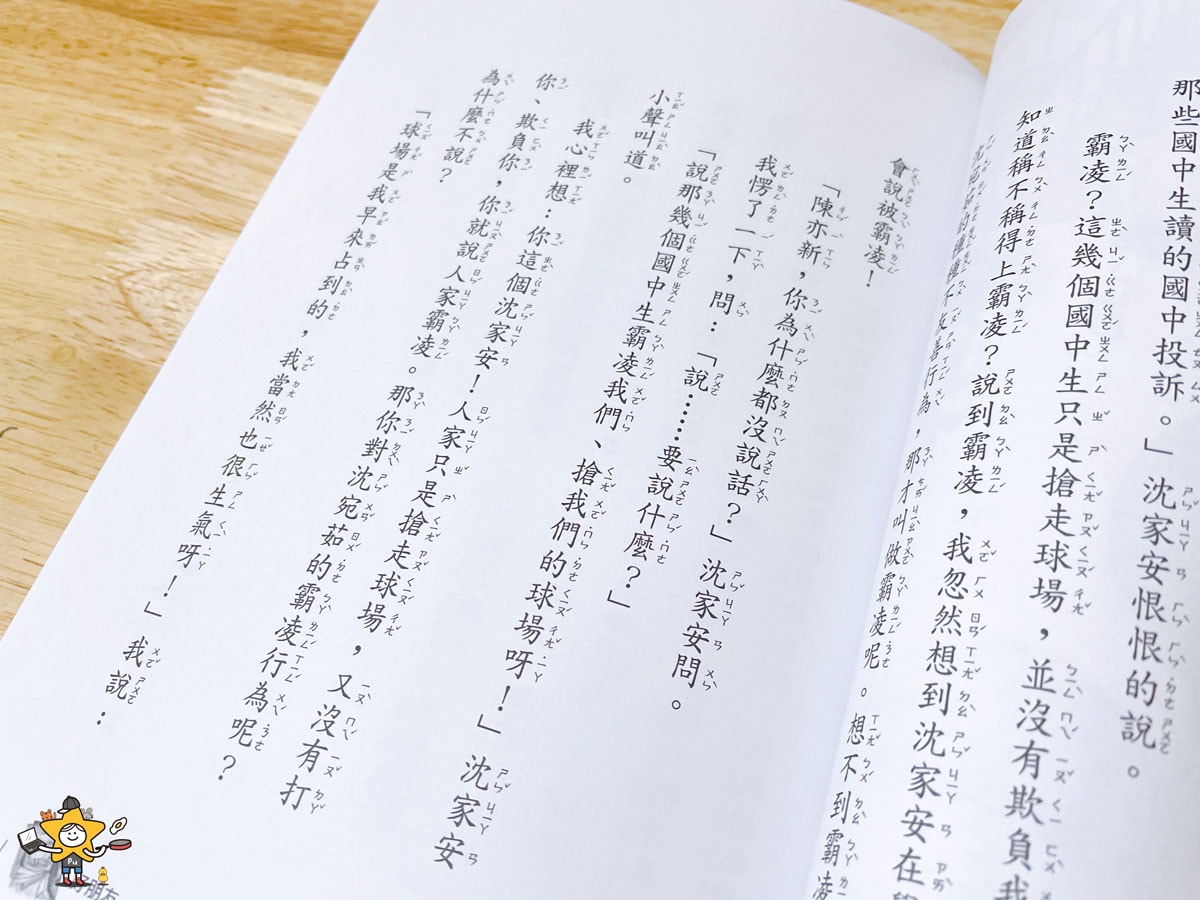 那些國中生讀的國中投訴。」沈家安恨恨的說。
霸凌？這幾個國中生只是搶走球場，並沒有欺負我
知道稱不稱得上霸凌？說到霸凌，我忽然想到沈家安在
不友善行為，那才叫做霸凌呢。想不到霸凌
會說被霸凌！
「陳亦新，你為什麼都沒說話？」沈家安問。
我愣了一下，問：「說……要說什麼？」
「說那幾個國中生霸凌我們、搶我們的球場呀！」沈家安
小聲叫道。
我心裡想：你這個沈家安！人家只是搶走球場，又沒有打
你、欺負你，你就說人家霸凌。那你對沈宛茹的霸凌行為呢？
為什麼不說？
「球場是我早來占到的，我當然也很生氣呀！」我說：
好朋友
Pu